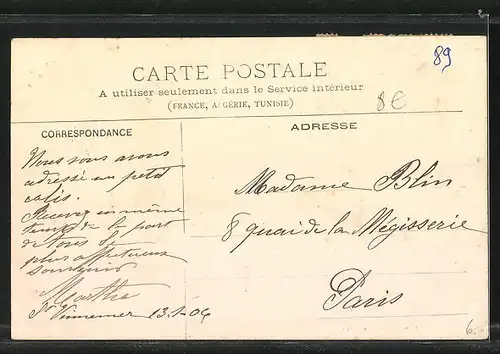 89
CARTE POSTALE
A utiliser seulement dans le Service intérieur
(FRANCE, ALGÉRIE, TUNISIE)
8€
CORRESPONDANCE
ADRESSE
Nous vous avons
adressé un petit
colis.
Recevez en même
temps de la part
de tous de
plus affectueux
souvenirs
Marthe
St Vinnemer 13-1-04
Madame Blin
8 quai de la Mégisserie
Paris
6.